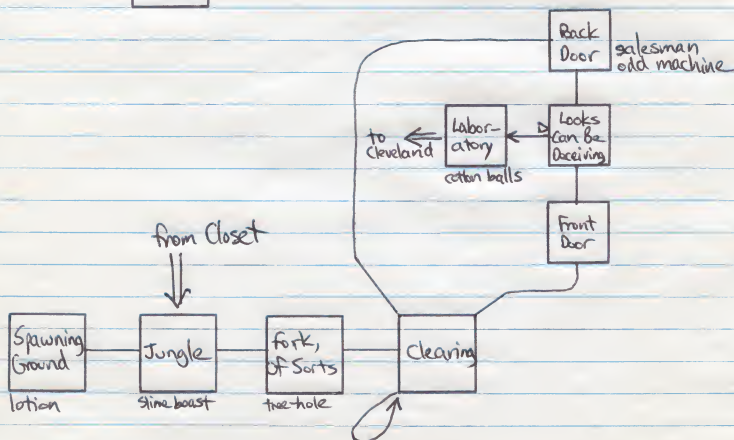 Back
Door
salesman
odd machine
to
Cleveland
Labor-
atory
cotton balls
Looks
Can Be
Deceiving
Front
Door
from Closet
Spawning
Ground
lotion
Jungle
slime beast
fork,
of Sorts
tree-hole
Clearing